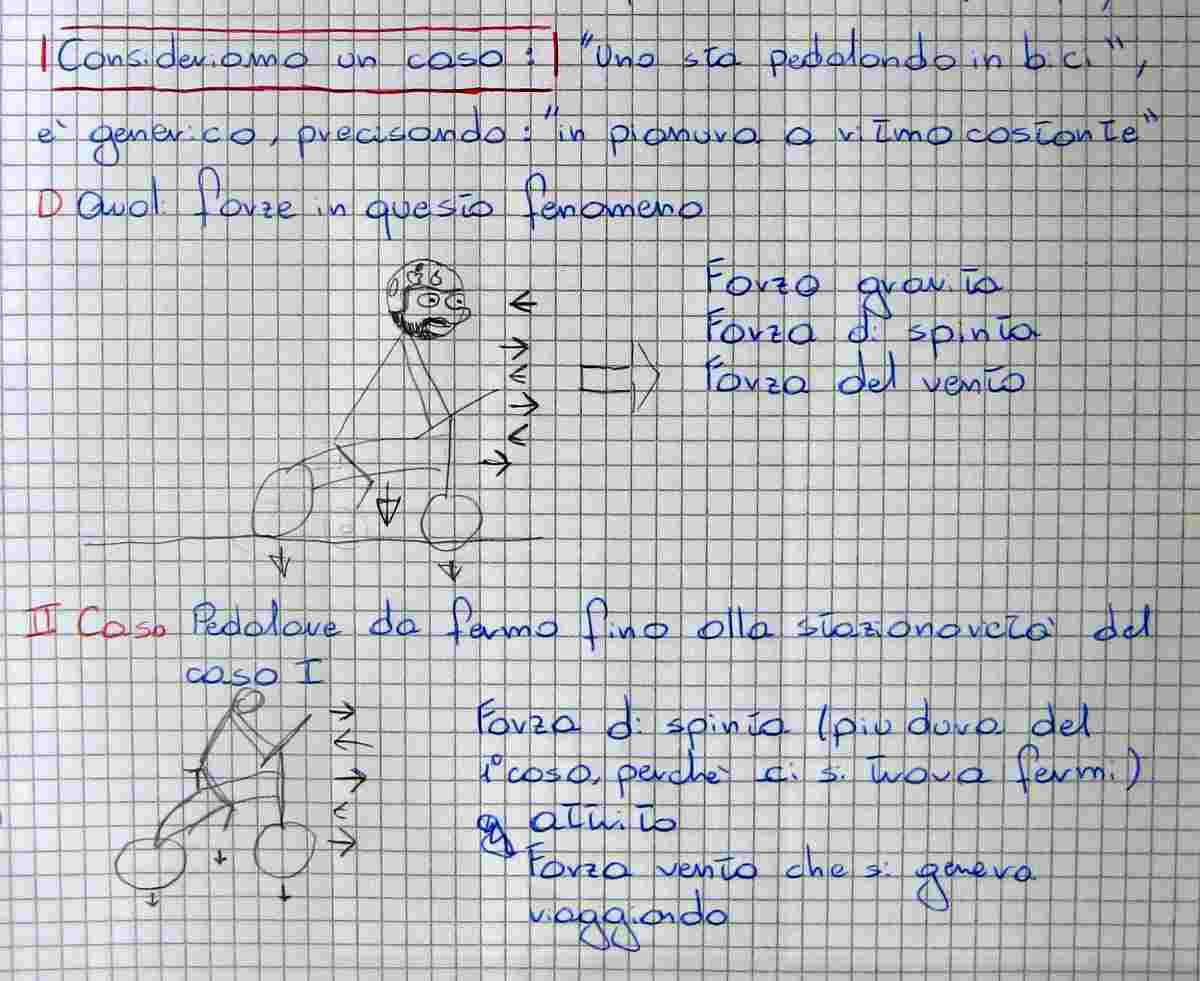 Consideriamo un caso: "Uno sta pedalando in bici",
e' generico, precisando: "in pianura a ritmo costante"
D Quali forze in questo fenomeno
Forza gravità
Forza di spinta
Forza del vento
II Caso Pedalare da fermo fino alla stazionarietà del
caso I
Forza di spinta (più dura del
1° caso, perchè ci si trova fermi)
attrito
Forza vento che si genera
viaggiando